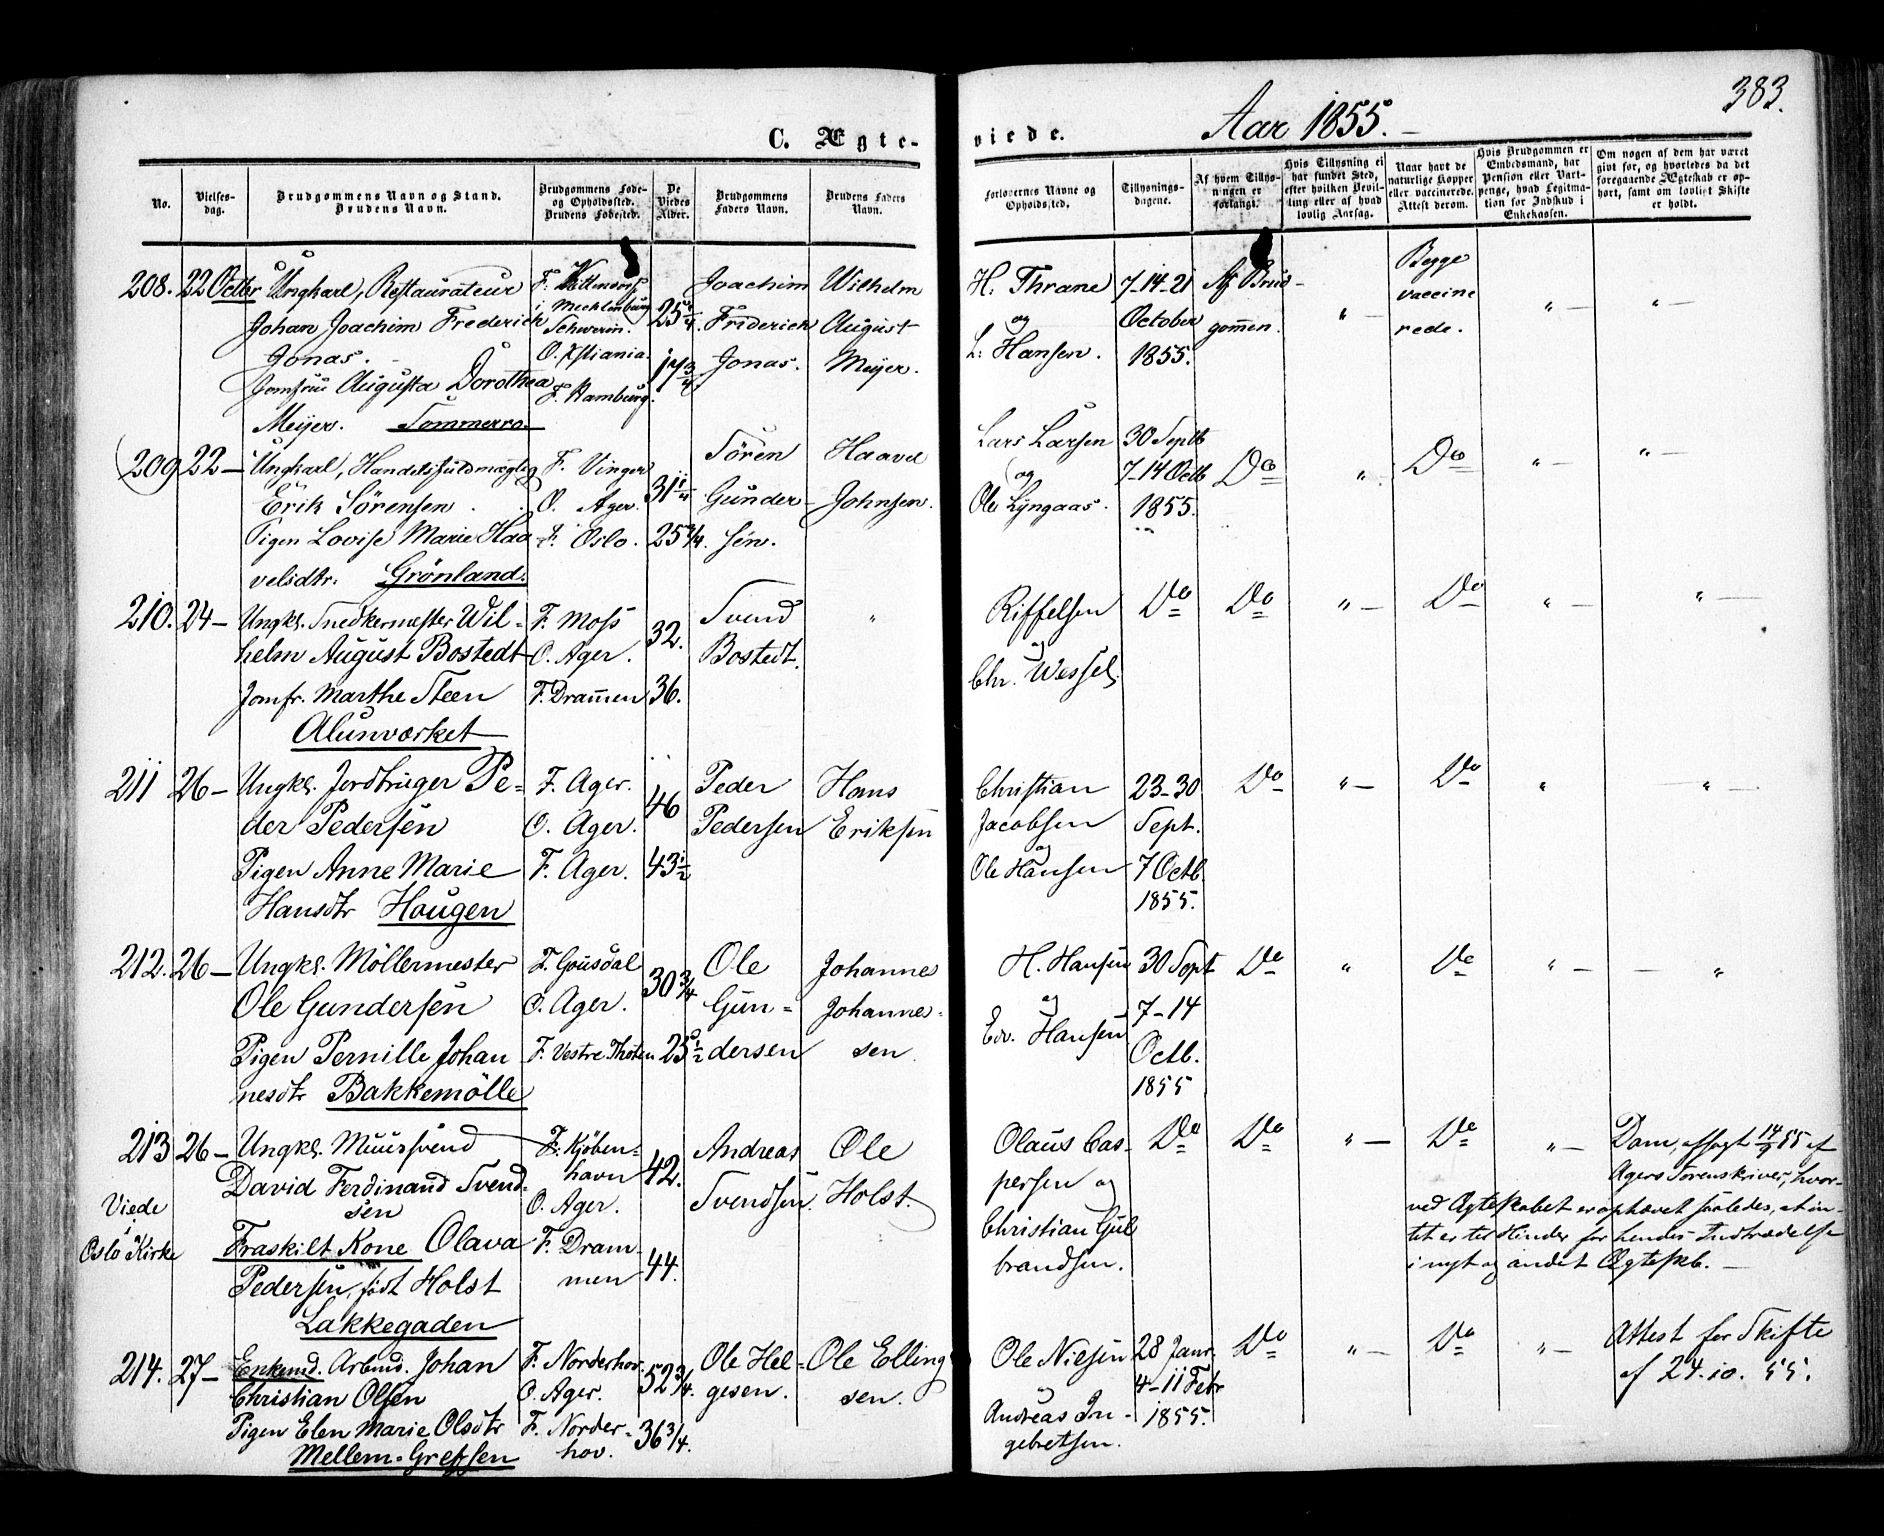 383.
Aar 1855.
C. Ægte-
viede.
No.
Vielses-
dag.
Brudgommens Navn og Stand.
Brudens Navn.
Brudgommens Føde-
og Opholdssted.
Brudens Fødested.
De
Viedes
Alder.
Brudgommens
Faders Navn.
Brudens Faders
Navn.
Forlovernes Navne og
Opholdssted.
Tillysnings-
dagene.
Af hvem Tillys-
ningen er
forlangt.
Hvis Tillysning ei
har fundet Sted,
efter hvilken Bevil-
ling eller af hvad
lovlig Aarsag.
Naar havt de
naturlige Kopper
eller vaccinerede.
Attest derom.
Hvis Brudgommen er
Embedsmand, har
Pension eller Vart-
penge, hvad Legitima-
tion for Indskud i
Enkekassen.
Om nogen af dem har været
gift før, og hvorledes da det
foregaaende Ægteskab er op-
hørt, samt om lovligt Skifte
er holdt.
208. 22 Octbr Ungkarl, Restaurateur
Johan Joachim Frederich
Jonas.
Jomfru Augusta Dorothea
Meijer. Sommerro.
F. Wittendorf
i Mecklenburg
Schwerin.
O. Xstiania.
F. Hamburg.
25 3/4
17 3/4
Joachim
Friderich
Jonas.
Wilhelm
August
Meijer.
H. Thrane
og
L. Hansen.
7-14-21
October
1855.
Af Brud-
gommen.
" —
Begge
vaccine
rede.
" —
" —
209 22 — Ungkarl, Handelsfuldmægtig
Erik Sörensen
Pigen Lovise Marie Haa
velsdtr. Grönland.
F. Vinger
O. Ager.
F. Oslo.
31 1/4
25 3/4.
Sören
Gunder
sen.
Haavel
Johnsen.
Lars Larsen
og
Ole Lyngaas.
30 Septb
7-14 Octb
1855.
Do
" —
Do
" —
" —
210. 24 — Ungkl. Snedkermester Wil-
helm August Bostedt
Jomfr. Marthe Steen
Alunværket
F. Moss
O. Ager.
F. Drammen
32.
36.
Svend
Bostedt.
"
Riffelsen
og
Chr. Wessel.
Do
Do
" —
Do
" —
" —
211 26 — Ungkl. Jordbruger Pe-
der Pedersen
Pigen Anne Marie
Hansdtr Haugen
F. Ager.
O. Ager.
F. Ager.
46
43 1/2
Peder
Pedersen
Hans
Eriksen
Christian
Jacobsen
og
Ole Hansen
23-30
Sept.
7 Octb.
1855.
Do
" —
Do
"
" —
212. 26 — Ungkl. Möllermester
Ole Gundersen
Pigen Pernille Johan
nesdtr Bakkemölle
F. Gousdal
O. Ager.
F. Vestre Thoten
30 3/4
25 1/2
Ole
Gun-
dersen
Johannes
Johannes-
sen.
H. Hansen
og
Edv. Hansen
30 Sept
7-14
Octb.
1855
Do
"
Do
" —
— "
213 26 — Ungkl. Muursvend
David Ferdinand Svend-
sen
Fraskilt Kone Olava
Pedersen, født Holst
Lakkegaden
Viede
i
Oslo Kirke
F. Kjöben-
havn
O. Ager.
F. Dram-
men
42.
44.
Andreas
Svendsen.
Ole
Holst.
Olaus Cas-
persen og
Christian Gul
brandsen.
Do
Do
" —
Do
" —
Dom, afsagt 14/9 55 af
Agers Sorenskriver, hvor-
ved Ægteskabet er ophævet saaledes, at in-
tet er til Hinder for hendes Indtrædelse
i nyt og andet Ægteskb. —
214. 27 — Enkemd. Arbmd. Johan
Christian Olsen
Pigen Elen Marie Olsdtr
Mellem-Grefsen
F. Norderhov.
O. Ager.
F. Norder-
hov.
52 3/4.
36 3/4.
Ole Hel-
gesen.
Ole Elling
sen.
Ole Nilsen
Andreas In-
gebretsen.
28 Janr.
4-11 Febr
1855.
Do
" —
Do
" —
Attest for Skifte
af 24.10.55.